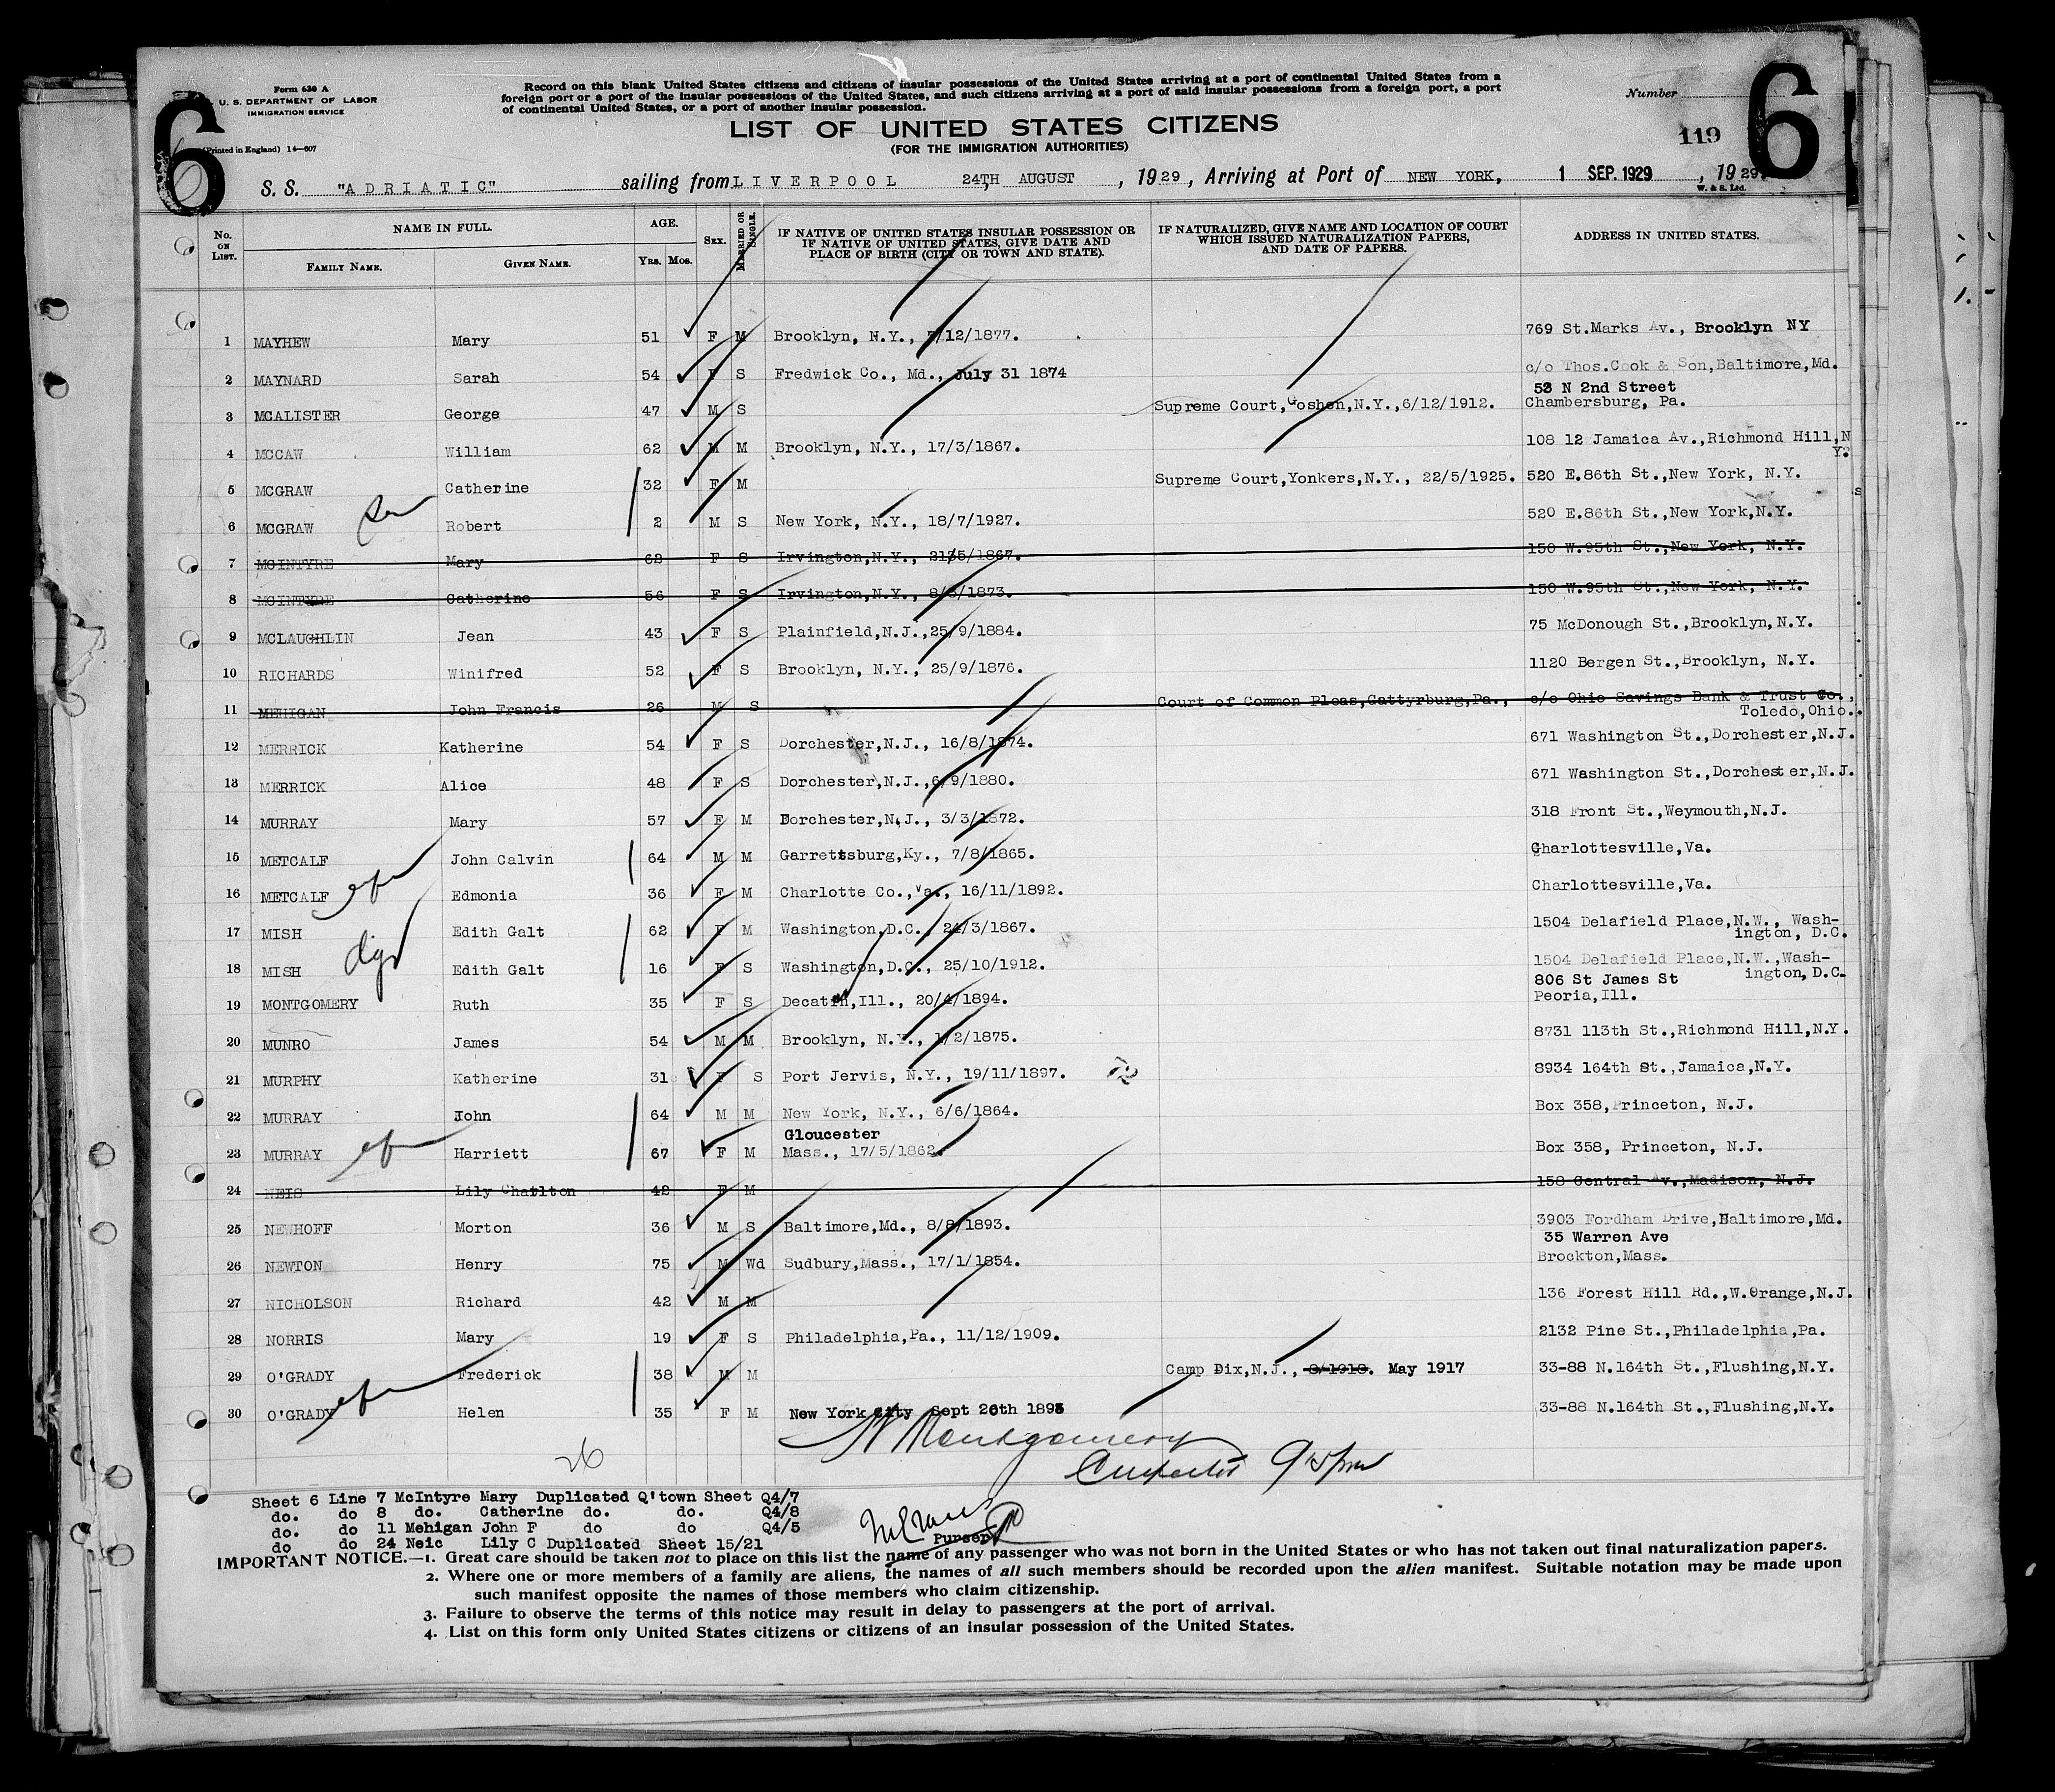 6
Form 630 A
U. S. DEPARTMENT OF LABOR
IMMIGRATION SERVICE
(Printed in England) 14—607
Record on this blank United States citizens and citizens of insular possessions of the United States arriving at a port of continental United States from a
foreign port or a port of the insular possessions of the United States, and such citizens arriving at a port of said insular possessions from a foreign port, a port
of continental United States, or a port of another insular possession.
LIST OF UNITED STATES CITIZENS
(FOR THE IMMIGRATION AUTHORITIES)
Number
119
6
S. S. "ADRIATIC" sailing from LIVERPOOL 24TH AUGUST, 1929, Arriving at Port of NEW YORK, 1 SEP. 1929, 1929.
W. & S. Ltd.
No. ON LIST. NAME IN FULL. FAMILY NAME. GIVEN NAME. AGE. YRS. MOS. SEX. MARRIED OR SINGLE. IF NATIVE OF UNITED STATES INSULAR POSSESSION OR IF NATIVE OF UNITED STATES, GIVE DATE AND PLACE OF BIRTH (CITY OR TOWN AND STATE). IF NATURALIZED, GIVE NAME AND LOCATION OF COURT WHICH ISSUED NATURALIZATION PAPERS, AND DATE OF PAPERS. ADDRESS IN UNITED STATES.
1 MAYHEW Mary 51 F M Brooklyn, N.Y., 7/12/1877. 769 St.Marks Av., Brooklyn NY
2 MAYNARD Sarah 54 F S Fredwick Co., Md., July 31 1874 c/o Thos.Cook & Son,Baltimore,Md.
3 MCALISTER George 47 M S Supreme Court,Goshen,N.Y.,6/12/1912. 53 N 2nd Street Chambersburg, Pa.
4 MCCAW William 62 M M Brooklyn, N.Y., 17/3/1867. 108 12 Jamaica Av.,Richmond Hill,N Y.
5 MCGRAW Catherine 32 F M Supreme Court,Yonkers,N.Y., 22/5/1925. 520 E.86th St.,New York, N.Y.
6 MCGRAW Robert 2 M S New York, N.Y., 18/7/1927. 520 E.86th St.,New York,N.Y.
7 MCINTYRE Mary 62 F S Irvington,N.Y., 21/5/1867. 150 W.95th St.,New York, N.Y.
8 MCINTYRE Catherine 56 F S Irvington,N.Y., 8/3/1873. 150 W.95th St.,New York, N.Y.
9 MCLAUGHLIN Jean 43 F S Plainfield,N.J.,25/9/1884. 75 McDonough St.,Brooklyn,N.Y.
10 RICHARDS Winifred 52 F S Brooklyn, N.Y., 25/9/1876. 1120 Bergen St.,Brooklyn, N.Y.
11 MEHIGAN John Francis 26 M S Court of Common Pleas,Gattyrburg,Pa., c/o Ohio Savings Bank & Trust Co., Toledo,Ohio.
12 MERRICK Katherine 54 F S Dorchester,N.J., 16/8/1874. 671 Washington St.,Dorchester,N.J.
13 MERRICK Alice 48 F S Dorchester,N.J.,6/9/1880. 671 Washington St.,Dorchester,N.J.
14 MURRAY Mary 57 F M Dorchester,N.J., 3/3/1872. 318 Front St.,Weymouth,N.J.
15 METCALF John Calvin 64 M M Garrettsburg,Ky., 7/8/1865. Charlottesville,Va.
16 METCALF Edmonia 36 F M Charlotte Co.,Va., 16/11/1892. Charlottesville,Va.
17 MISH Edith Galt 62 F M Washington,D.C., 24/3/1867. 1504 Delafield Place,N.W., Wash- ington, D.C.
18 MISH Edith Galt 16 F S Washington,D.C., 25/10/1912. 1504 Delafield Place,N.W.,Wash- ington,D.C.
19 MONTGOMERY Ruth 35 F S Decatur,Ill., 20/4/1894. 806 St James St Peoria,Ill.
20 MUNRO James 54 M M Brooklyn, N.Y., 1/2/1875. 8731 113th St.,Richmond Hill,N.Y.
21 MURPHY Katherine 31 F S Port Jervis, N.Y., 19/11/1897. 8934 164th St.,Jamaica,N.Y.
22 MURRAY John 64 M M New York, N.Y., 6/6/1864. Box 358,Princeton, N.J.
23 MURRAY Harriett 67 F M Gloucester Mass., 17/5/1862. Box 358, Princeton, N.J.
24 NEIS Lily Charlton 42 F M 158 Central Av.,Madison, N.J.
25 NEWHOFF Morton 36 M S Baltimore,Md., 8/8/1893. 3903 Fordham Drive,Baltimore,Md.
26 NEWTON Henry 75 M Wd Sudbury,Mass., 17/1/1854. 35 Warren Ave Brockton,Mass.
27 NICHOLSON Richard 42 M M 136 Forest Hill Rd.,W.Orange,N.J.
28 NORRIS Mary 19 F S Philadelphia,Pa., 11/12/1909. 2132 Pine St.,Philadelphia,Pa.
29 O'GRADY Frederick 38 M M Camp Dix,N.J., 8/1918. May 1917 33-88 N.164th St.,Flushing,N.Y.
30 O'GRADY Helen 35 F M New York City Sept 20th 1893 33-88 N.164th St.,Flushing,N.Y.
Montgomery
26
Sheet 6 Line 7 McIntyre Mary Duplicated Q'town Sheet Q4/7
do. do 8 do. Catherine do. do. Q4/8
do. do 11 Mehigan John F do do Q4/5
do do 24 Neic Lily C Duplicated Sheet 15/21
Purser
IMPORTANT NOTICE.—1. Great care should be taken not to place on this list the name of any passenger who was not born in the United States or who has not taken out final naturalization papers.
2. Where one or more members of a family are aliens, the names of all such members should be recorded upon the alien manifest. Suitable notation may be made upon
such manifest opposite the names of those members who claim citizenship.
3. Failure to observe the terms of this notice may result in delay to passengers at the port of arrival.
4. List on this form only United States citizens or citizens of an insular possession of the United States.